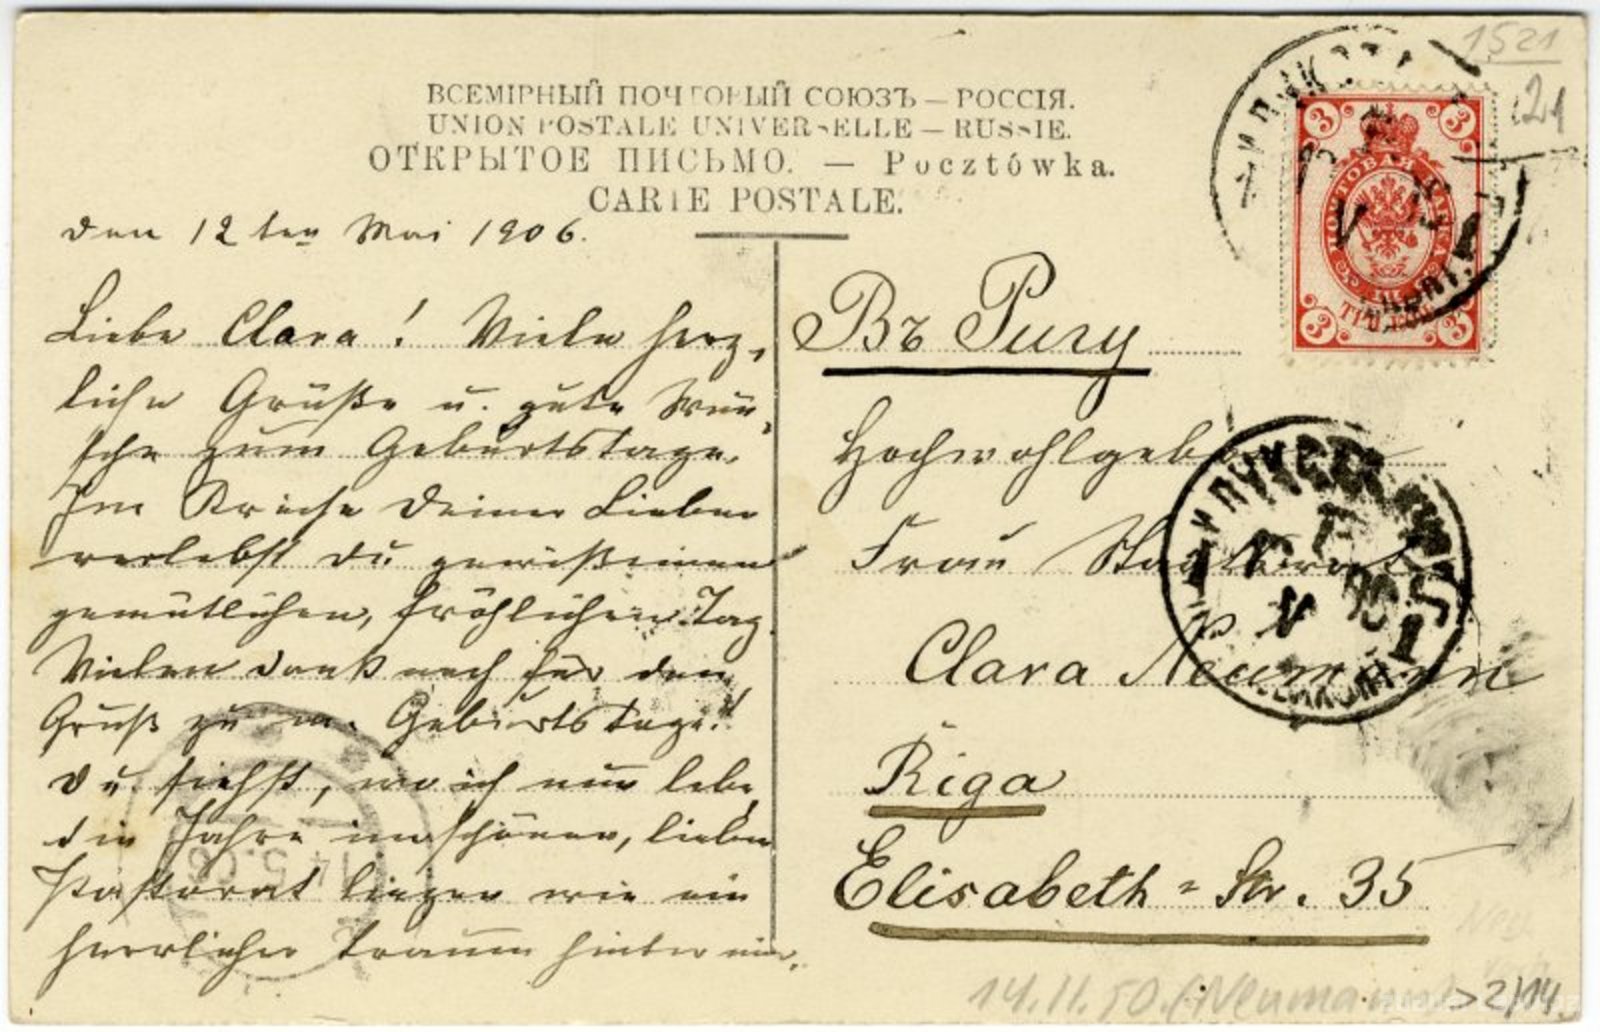 ВСЕМІРНЫЙ ПОЧТОВЫЙ СОЮЗЪ — РОССІЯ.
UNION POSTALE UNIVERSELLE — RUSSIE.
ОТКРЫТОЕ ПИСЬМО. — Pocztówka.
CARTE POSTALE.
den 12ten Mai 1906.
Liebe Clara! Viele herz-
liche Grüße u. gute Wün-
sche zum Geburtstage.
Im Kreise Deiner Lieben
verlebst du gewiß einen
gemütlichen, fröhlichen Tag.
Vielen Dank noch für den
Gruß zu m. Geburtstage!
Du siehst, wo ich nun lebe,
die Jahre im schönen, lieben
Pastorat liegen wie ein
herrlicher Traum hinter mir.
Въ Ригу
Hochwohlgeb.
Frau Staatsrat
Clara Neumann
Riga
Elisabeth-Str. 35
3 3
ПОЧТОВАЯ МАРКА
3 3
14 5 06
1521
21
14.11.50. (Neumann) > 2/14